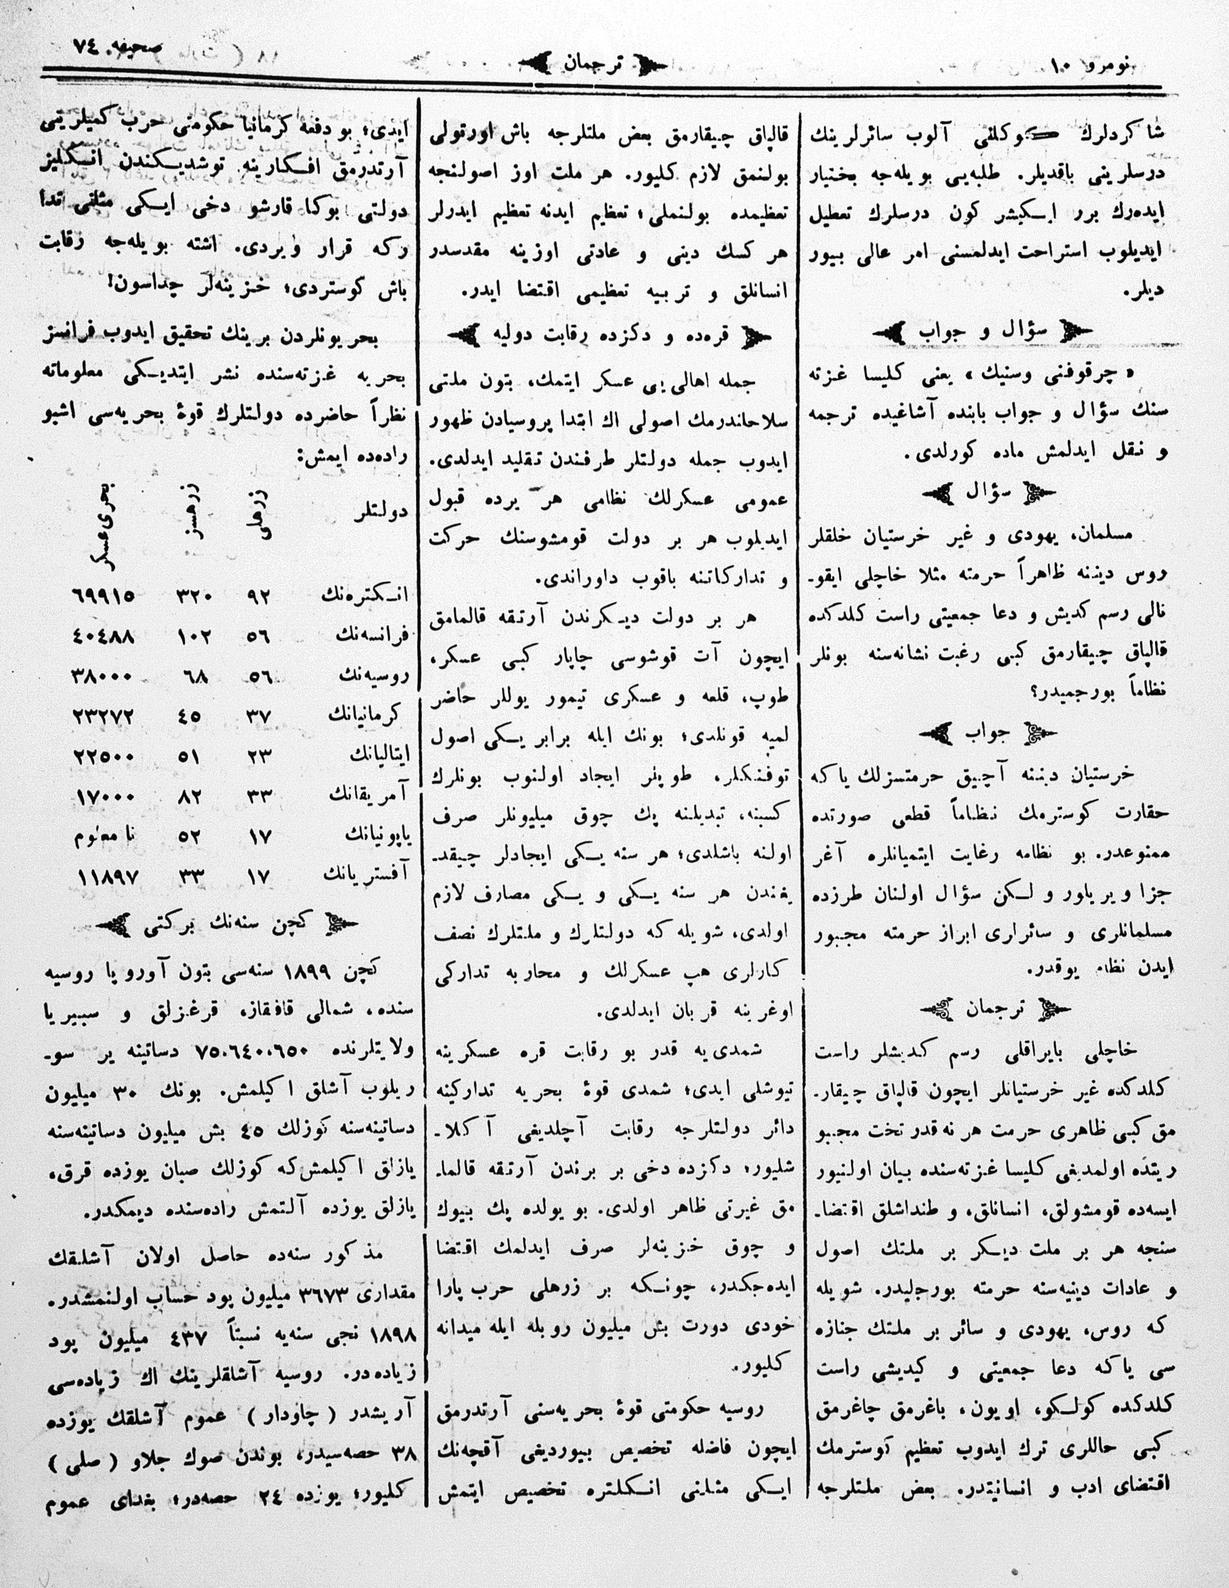 نومرو ١٠
ترجمان
صحیفه ٧٤
شاکردلرك کوکلنی آلوب سائرلرینك
درسلرینی باقدیلر. طلبه‌یی بویله‌جه بختیار
ایده‌رك برر ایکیشر کون درسلرك تعطیل
ایدیلوب استراحت ایدلمسنی امر عالی بیور
دیلر.
سؤال و جواب
« چرقوفنی وستنیك » یعنی کلیسا غزته
سنك سؤال و جواب بابنده آشاغیده ترجمه
و نقل ایدلمش ماده کورلدی.
سؤال
مسلمان، یهودی و غیر خرستیان خلقلر
روس دیننه ظاهراً حرمته مثلا خاچلی ایقو-
نالی رسم کدیش و دعا جمعیتی راست کلدکده
قالپاق چیقارمق کبی رغبت نشانه‌سنه بونلر
نظاماً بورجمیدر؟
جواب
خرستیان دیننه آچیق حرمتسزلك یاکه
حقارت کوسترمك نظاماً قطعی صورتده
ممنوعدر. بو نظامه رغایت ایتمیانلره آغر
جزا ویریلور و لکن سؤال اولنان طرزده
مسلمانلری و سائرلری ابراز حرمته مجبور
ایدن نظام یوقدر.
ترجمان
خاچلی بایراقلی رسم کدیشلر راست
کلدکده غیر خرستیانلر ایچون قالپاق چیقار-
مق کبی ظاهری حرمت هر نه قدر تحت مجبو
ریتده اولمدیغی کلیسا غزته‌سنده بیان اولنیور
ایسه‌ده قومشولق، انسانلق، و طنداشلق اقتضا-
سنجه هر بر ملت دیکر بر ملتك اصول
و عادات دینیه‌سنه حرمته بورجلیدر. شویله
که روس، یهودی و سائر بر ملتك جنازه
سی یاکه دعا جمعیتی و کیدیشی راست
کلدکده کولکو، اویون، باغرمق چاغرمق
کبی حاللری ترك ایدوب تعظیم کوسترمك
اقتضای ادب و انسانیتدر. بعض ملتلرجه
قالپاق چیقارمق بعض ملتلرجه باش اورتولی
بولنمق لازم کلیور. هر ملت اوز اصولنجه
تعظیمده بولنملی؛ تعظیم ایدنه تعظیم ایدرلر
هر کسك دینی و عادتی اوزینه مقدسدر
انسانلق و تربیه تعظیمی اقتضا ایدر.
قره‌ده و دکزده رقابت دولیه
جمله اهالی‌یی عسکر ایتمك، بتون ملتی
سلاحاندرمك اصولی اك ابتدا پروسیادن ظهور
ایدوب جمله دولتلر طرفندن تقلید ایدلدی.
عمومی عسکرلك نظامی هر یرده قبول
ایدیلوب هر بر دولت قومشوسنك حرکت
و تدارکاتنه باقوب داوراندی.
هر بر دولت دیکرندن آرتقه قالمامق
ایچون آت قوشوسی چاپار کبی عسکر،
طوپ، قلعه و عسکری تیمور یوللر حاضر
لمیه قونلدی؛ بونك ایله برابر یکی اصول
توفنکلر، طوپلر ایجاد اولنوب بونلرك
کسبنه، تبدیلنه پك چوق میلیونلر صرف
اولنه باشلدی؛ هر سنه یکی ایجادلر چیقد-
یغندن هر سنه یکی و یکی مصارف لازم
اولدی، شویله که دولتلرك و ملتلرك نصف
کارلری هپ عسکرلك و محاربه تدارکی
اوغرینه قربان ایدلدی.
شمدی‌یه قدر بو رقابت قره عسکرینه
تیوشلی ایدی؛ شمدی قوۀ بحریه تدارکینه
دائر دولتلرجه رقابت آچلدیغی آکلا-
شلیور؛ دکزده دخی بر برندن آرتقه قالما-
مق غیرتی ظاهر اولدی. بو یولده پك بیوك
و چوق خزینه‌لر صرف ایدلمك اقتضا
ایده‌جکدر، چونکه بر زرهلی حرب پارا
خودی دورت بش میلیون روبله ایله میدانه
کلیور.
روسیه حکومتی قوۀ بحریه‌سنی آرتدرمق
ایچون فاضله تخصیص بیوردیغی آقچه‌نك
ایکی مثلینی انکلتره تخصیص ایتمش
ایدی؛ بو دفعه کرمانیا حکومتی حرب کمیلرینی
آرتدرمق افکارینه توشدیکندن انکلیز
دولتی بوکا قارشو دخی ایکی مثلنی تدا
رکه قرار ویردی. اشته بویله‌جه رقابت
باش کوستردی؛ خزینه‌لر چداسون!
بحریونلردن برینك تحقیق ایدوب فرانسز
بحریه غزته‌سنده نشر ایتدیکی معلوماته
نظراً حاضرده دولتلرك قوۀ بحریه‌سی اشبو
راده‌ده ایمش:
دولتلر زرهلی زرهسز بحری عسکر
انکتره‌نك ٩٢ ٣٢٠ ٦٩٩١٥
فرانسه‌نك ٥٦ ١٠٢ ٤٠٤٨٨
روسیه‌نك ٥٦ ٦٨ ٣٨٠٠٠
کرمانیانك ٣٧ ٤٥ ٢٣٢٧٢
ایتالیانك ٢٣ ٥١ ٢٢٥٠٠
آمریقانك ٣٣ ٨٢ ١٧٠٠٠
یاپونیانك ١٧ ٥٢ نا معلوم
آفستریانك ١٧ ٣٣ ١١٨٩٧
کچن سنه‌نك برکتی
کچن ١٨٩٩ سنه‌سی بتون آوروپا روسیه
سنده، شمالی قافقاز، قرغزلق و سیبیریا
ولایتلرنده ٧٥٠٦٤٠٠٦٥٠ دساتینه یر سو-
ریلوب آشلق اکیلمش. بونك ٣٠ میلیون
دساتینه‌سنه کوزلك ٤٥ بش میلیون دساتینه‌سنه
یازلق اکیلمش‌که کوزلك صبان یوزده قرق،
یازلق یوزده آلتمش راده‌سنده دیمکدر.
مذکور سنه‌ده حاصل اولان آشلقك
مقداری ٣٦٧٣ میلیون پود حساب اولنمشدر.
١٨٩٨ نجی سنه‌یه نسبتاً ٤٣٧ میلیون پود
زیاده‌در. روسیه آشلقلرینك اك زیاده‌سی
آریشدر ( چاودار ) عموم آشلقك یوزده
٣٨ حصه‌سیدر، بوندن صوك جلاو ( صلی )
کلیور؛ یوزده ٢٤ حصه‌در؛ بغدای عموم